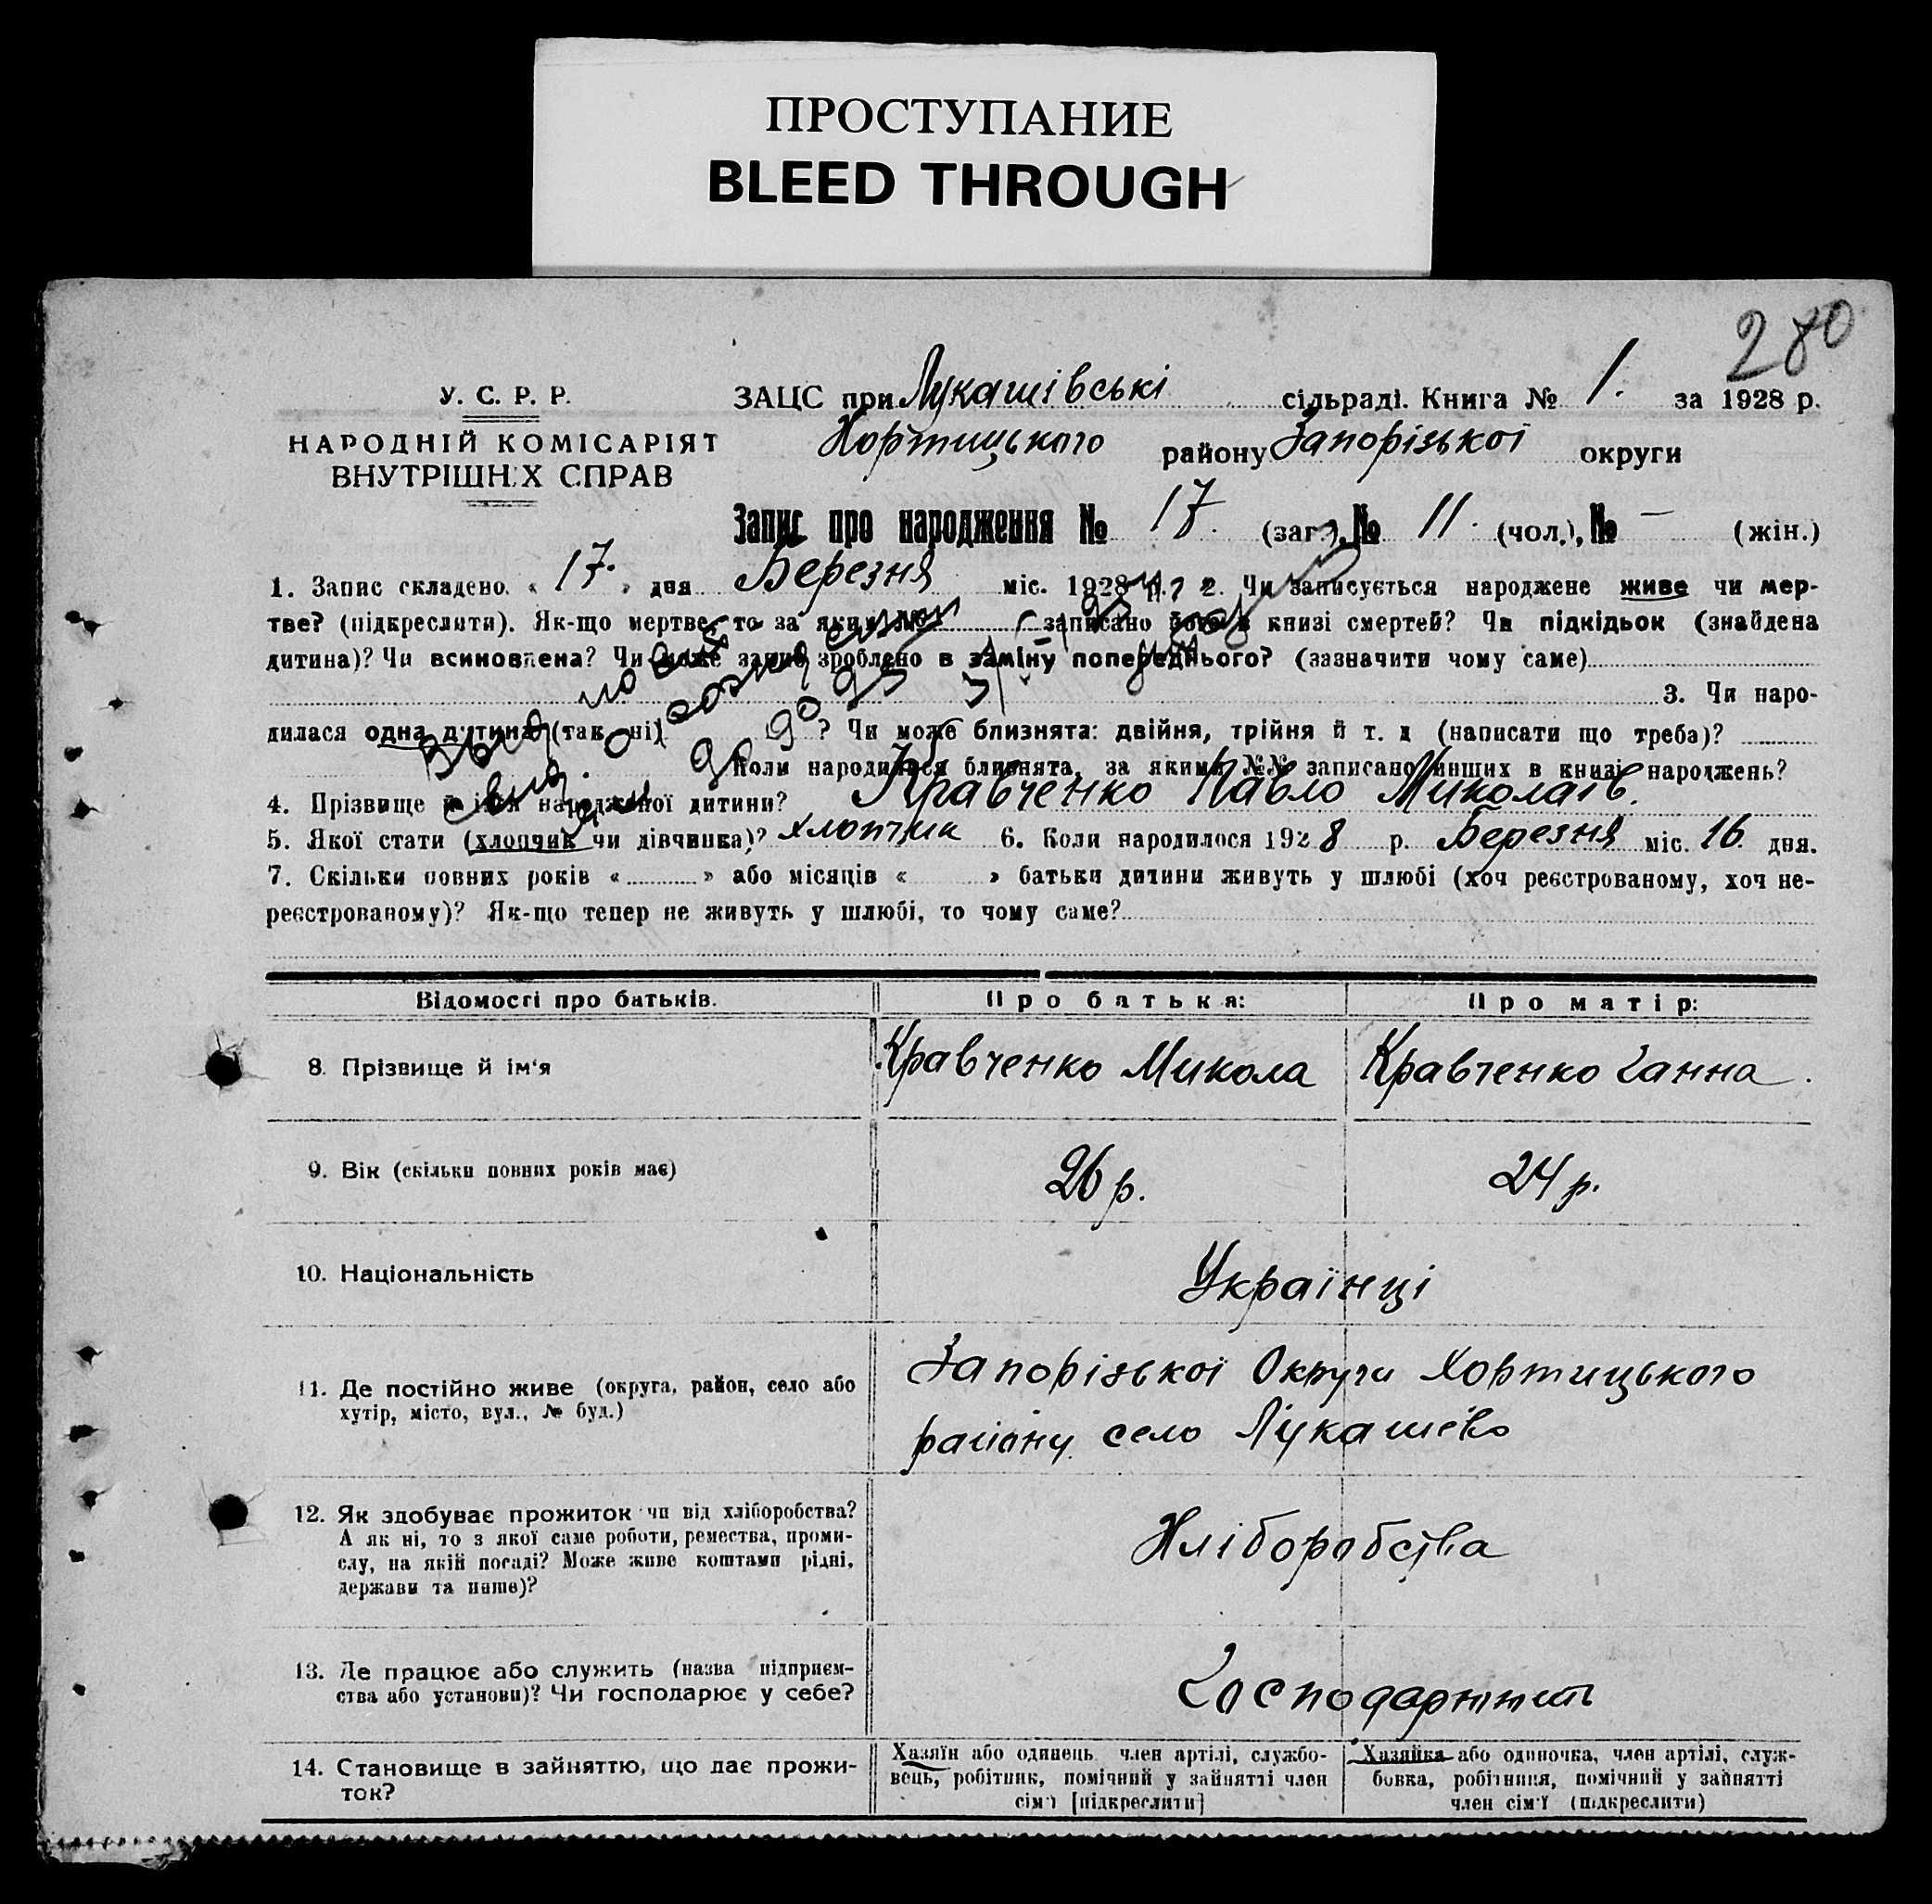 ПРОСТУПАНИЕ
BLEED THROUGH
280
У. С. Р. Р.
НАРОДНІЙ КОМІСАРІЯТ
ВНУТРІШНІХ СПРАВ
ЗАЦС при Лукашівські сільраді. Книга № 1. за 1928 р.
Хортицького району Запорізької округи
Запис про народження № 17. (заг.), № 11. (чол.), № — (жін.)
1. Запис складено « 17. » дня Березня міс. 1928 р. 2. Чи записується народжене живе чи мер-
тве? (підкреслити). Як-що мертве, то за яким № записано його в книзі смертей? Чи підкідьок (знайдена
дитина)? Чи всиновлена? Чи може запис зроблено в заміну попереднього? (зазначити чому саме)
3. Чи наро-
дилася одна дитина (так, ні) ? Чи може близнята: двійня, трійня й т. д (написати що треба)?
Коли народилися близнята, за якими №№ записано инших в книзі народжень?
4. Прізвище й ім'я народженої дитини? Кравченко Павло Миколаїв.
5. Якої стати (хлопчик чи дівчинка)? хлопчик 6. Коли народилося 1928 р. Березня міс. 16 дня.
7. Скільки повних років « » або місяців « » батьки дитини живуть у шлюбі (хоч реєстрованому, хоч не-
реєстрованому)? Як-що тепер не живуть у шлюбі, то чому саме?
Відомості про батьків. Про батька: Про матір:
8. Прізвище й ім'я Кравченко Микола Кравченко Ганна.
9. Вік (скільки повних років має) 26 р. 24 р.
10. Національність Українці
11. Де постійно живе (округа, район, село або
хутір, місто, вул., № буд.)
Запорізької Округи Хортицького
району село Лукашево
12. Як здобуває прожиток чи від хліборобства?
А як ні, то з якої саме роботи, ремества, проми-
слу, на якій посаді? Може живе коштами рідні,
держави та инше)?
Хліборобства
13. Де працює або служить (назва підприєм-
ства або установи)? Чи господарює у себе?
14. Становище в зайняттю, що дає прожи-
ток?
Хазяїн або одинець член артілі, службо-
вець, робітник, помічний у зайнятті член
сім'ї [підкреслити]
Хазяйка або одиночка, член артілі, служ-
бовка, робітниця, помічний у зайнятті
член сім'ї (підкреслити)